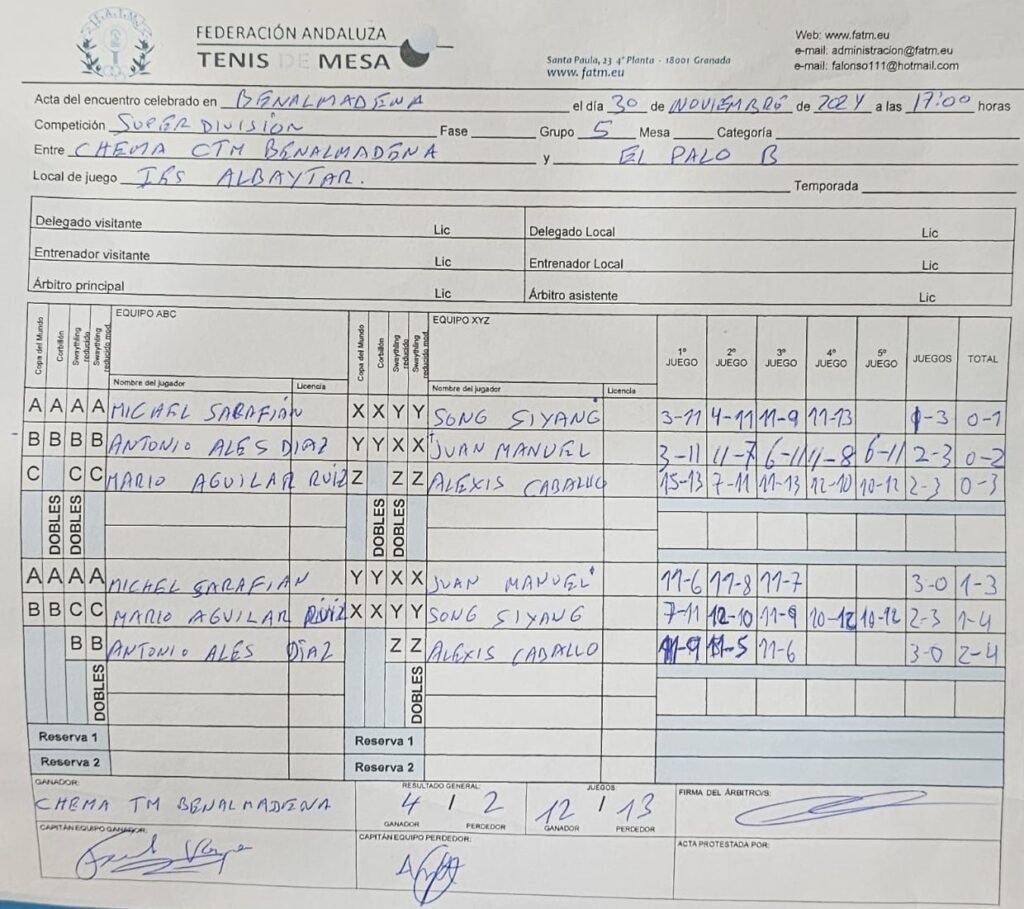 F.A.T.M.
FEDERACIÓN ANDALUZA
TENIS DE MESA
Santa Paula, 23 4ª Planta - 18001 Granada
www. fatm.eu
Web: www.fatm.eu
e-mail: administracion@fatm.eu
e-mail: falonso111@hotmail.com
Acta del encuentro celebrado en BENALMADENA el día 30 de NOVIEMBRE de 2024 a las 17:00 horas
Competición SUPER DIVISIÓN Fase Grupo 5 Mesa Categoría
Entre CHEMA CTM BENALMADENA y EL PALO B
Local de juego IES ALBAYTAR. Temporada
Delegado visitante Lic Delegado Local Lic
Entrenador visitante Lic Entrenador Local Lic
Árbitro principal Lic Árbitro asistente Lic
Copa del Mundo Corbillón Swaythling reducido Swaythling reducido mod. EQUIPO ABC Copa del Mundo Corbillón Swaythling reducido Swaythling reducido mod. EQUIPO XYZ 1º JUEGO 2º JUEGO 3º JUEGO 4º JUEGO 5º JUEGO JUEGOS TOTAL
Nombre del jugador Licencia Nombre del jugador Licencia
A A A A MICHEL SARAFIÁN X X Y Y SONG SIYANG 3-11 4-11 11-9 11-13 1-3 0-1
B B B B ANTONIO ALES DIAZ Y Y X X JUAN MANUEL 3-11 11-7 6-11 11-8 6-11 2-3 0-2
C C C MARIO AGUILAR RUIZ Z Z Z ALEXIS CABALLO 15-13 7-11 11-13 12-10 10-12 2-3 0-3
DOBLES DOBLES DOBLES DOBLES
A A A A MICHEL SARAFIAN Y Y X X JUAN MANUEL 11-6 11-8 11-7 3-0 1-3
B B C C MARIO AGUILAR RUIZ X X Y Y SONG SIYANG 7-11 12-10 11-9 10-12 10-12 2-3 1-4
B B ANTONIO ALES DIAZ Z Z ALEXIS CABALLO 11-9 11-5 11-6 3-0 2-4
DOBLES DOBLES
Reserva 1 Reserva 1
Reserva 2 Reserva 2
GANADOR: RESULTADO GENERAL: JUEGOS: FIRMA DEL ÁRBITRO/S:
CHEMA TM BENALMADENA 4 / 2 12 / 13
GANADOR PERDEDOR GANADOR PERDEDOR
CAPITÁN EQUIPO GANADOR: CAPITÁN EQUIPO PERDEDOR: ACTA PROTESTADA POR: